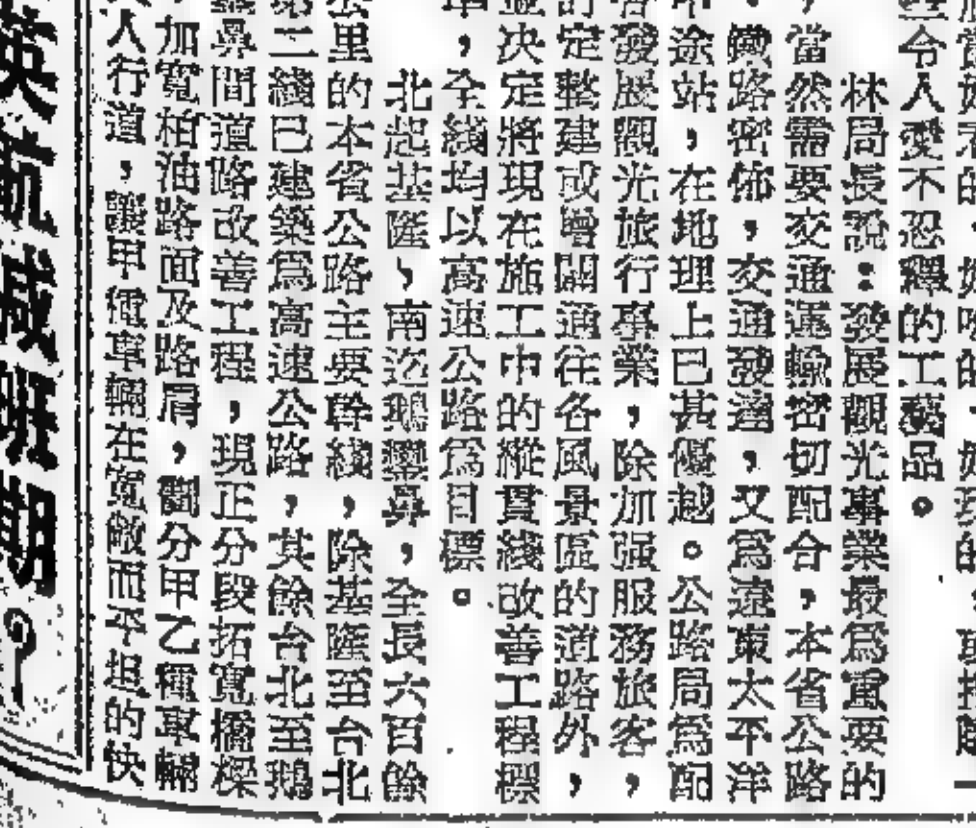 些令人愛不忍釋的工藝品。
林局長說：發展觀光事業最為重要的
，當然需要交通運輸密切配合，本省公路
鐵路密佈，交通發達，又為遠東太平洋
中途站，在地理上已甚優越。公路局為配
合發展觀光旅行事業，除加强服務旅客，
訂定整建或增闢通往各風景區的道路外，
並決定將現在施工中的縱貫綫改善工程標
準，全綫均以高速公路為目標。
北起基隆、南迄鵝鑾鼻，全長六百餘
公里的本省公路主要幹綫，除基隆至台北
第二綫已建築為高速公路，其餘台北至鵝
鑾鼻間道路改善工程，現正分段拓寬橋樑
，加寬柏油路面及路肩，劃分甲乙種車輛
人行道，讓甲種車輛在寬敞而平坦的快
英航減班期